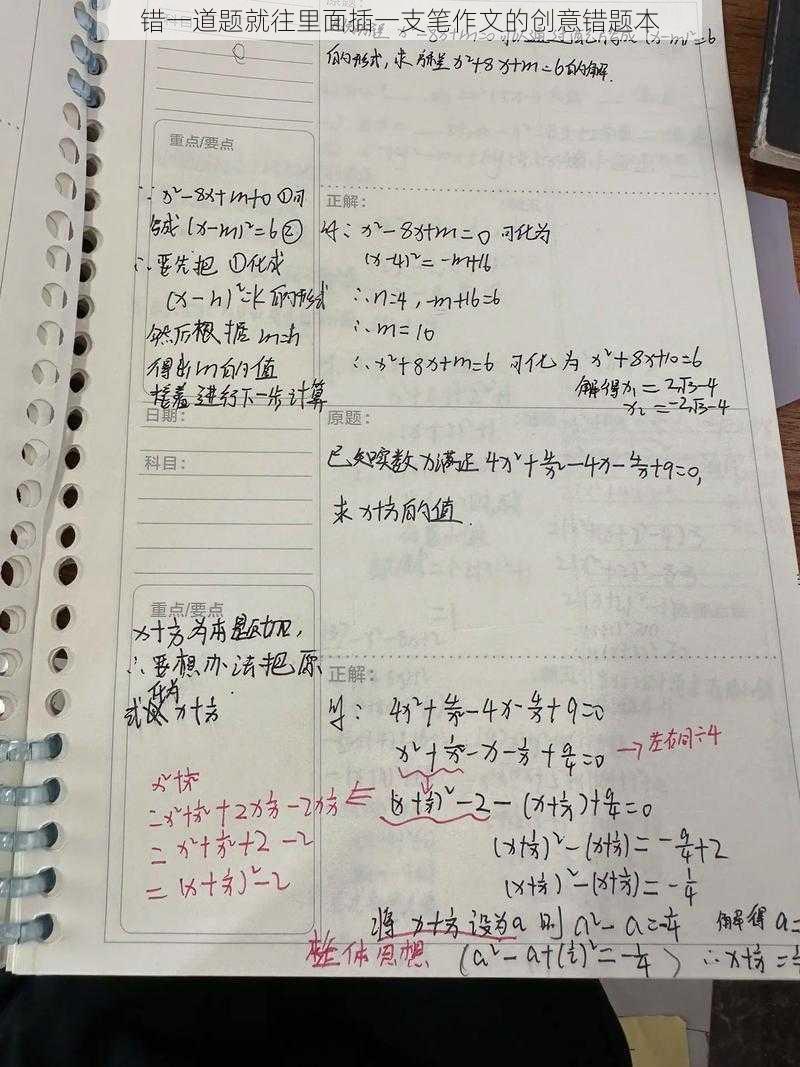 错一道题就往里面插一支笔作文的创意错题本
科目
原题:
的形式,求解 x²+8x+m=6的解.
重点/要点
∵ x²-8x+m=0 ①可
写成 (x-m)²=6②
∴要先把 ①化成
(x-n)²=k 的形式
然后根据 m=n
得出m的值
接着进行下一步计算
正解:
解: x²-8x+m=0 可化为
(x-4)²=-m+16
∴n=4, -m+16=6
∴m=10
∴x²+8x+m=6 可化为 x²+8x+10=6
解得x₁=2√3-4
x₂=-2√3-4
日期:
科目:
原题:
已知实数x满足 4x²+4/x²-4x-4/x+9=0,
求 x+1/x的值.
重点/要点
∴要想办法把原
式化为 x+1/x
x²+1/x²
=x²+1/x²+2x·1/x-2x·1/x
=x²+1/x²+2-2
=(x+1/x)²-2
正解:
解: 4x²+4/x²-4x-4/x+9=0
x²+1/x²-x-1/x+9/4=0 →左右同÷4
(x+1/x)²-2-(x+1/x)+9/4=0
(x+1/x)²-(x+1/x)=-9/4+2
(x+1/x)²-(x+1/x)=-1/4
将 x+1/x 设为a 则 a²-a=-1/4 解得 a=
整体思想 (a²-a+(1/2)²=-1/4) ∴x+1/x=